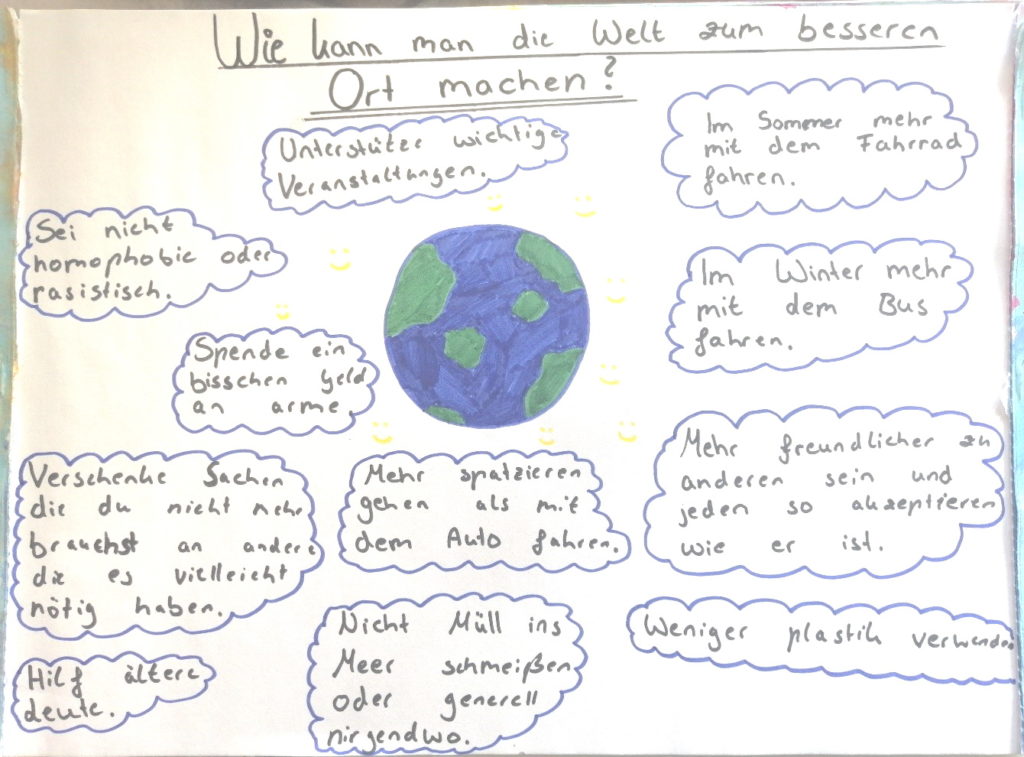 Wie kann man die Welt zum besseren
Ort machen?
Unterstütze wichtige
Veranstaltungen.
Im Sommer mehr
mit dem Fahrrad
fahren.
Sei nicht
homophobie oder
rasistisch.
Im Winter mehr
mit dem Bus
fahren.
Spende ein
bisschen Geld
an arme
Mehr freundlicher zu
anderen sein und
jeden so akzeptieren
wie er ist.
Verschenke Sachen
die du nicht mehr
brauchst an andere
die es vielleicht
nötig haben.
Mehr spatzieren
gehen als mit
dem Auto fahren.
Nicht Müll ins
Meer schmeißen
oder generell
nirgendwo.
Weniger plastik verwenden
Hilf ältere
deute.